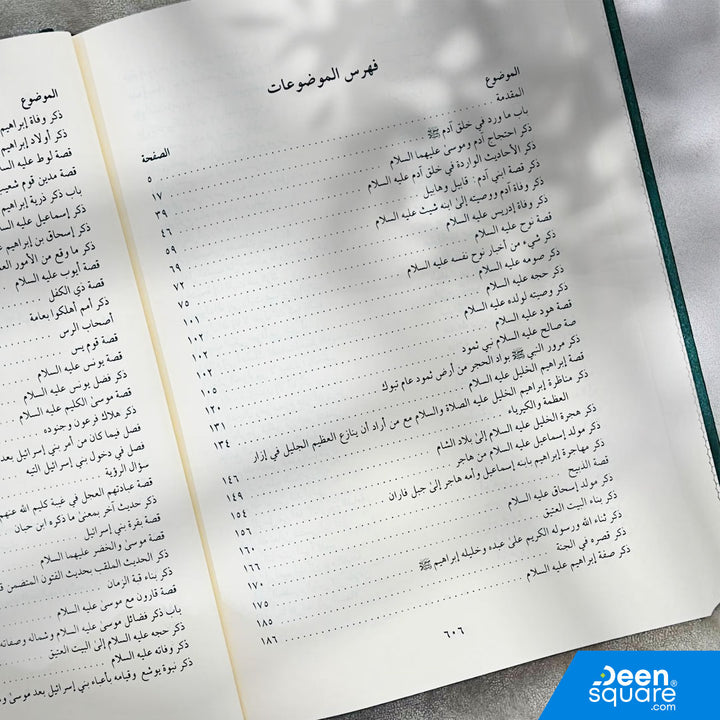 فهرس الموضوعات
الموضوع الصفحة
المقدمة ٥
باب ما ورد في خلق آدم ﷺ ١٧
ذكر احتجاج آدم وموسى عليهما السلام ٣٩
ذكر الأحاديث الواردة في خلق آدم عليه السلام ٤٦
ذكر قصة ابني آدم: قابيل وهابيل ٥٩
ذكر وفاة آدم ووصيته إلى ابنه شيث عليه السلام ٦٩
ذكر وفاة إدريس عليه السلام ٧٢
قصة نوح عليه السلام ٧٥
ذكر شيء من أخبار نوح نفسه عليه السلام ١٠١
ذكر صومه عليه السلام ١٠٢
ذكر حجه عليه السلام ١٠٢
ذكر وصيته لولده عليه السلام ١٠٢
قصة هود عليه السلام ١٠٥
صة صالح عليه السلام نبي ثمود ١٢٠
ذكر مرور النبي ﷺ بواد الحجر من أرض ثمود عام تبوك ١٣١
قصة إبراهيم الخليل عليه السلام ١٣٤
ذكر مناظرة إبراهيم الخليل عليه الصلاة والسلام مع من أراد أن ينازع العظيم الجليل في إزار
العظمة والكبرياء ١٤٦
ذكر هجرة الخليل عليه السلام إلى بلاد الشام ١٤٩
ذكر مولد إسماعيل عليه السلام من هاجر ١٥٤
ذكر مهاجرة إبراهيم بابنه إسماعيل وأمه هاجر إلى جبل فاران ١٥٦
قصة الذبيح ١٦٠
ذكر مولد إسحاق عليه السلام ١٦٦
ذكر بناء البيت العتيق ١٧٠
ذكر ثناء الله ورسوله الكريم على عبده وخليله إبراهيم ﷺ ١٧٥
ذكر قصره في الجنة ١٨٥
ذكر صفة إبراهيم عليه السلام ١٨٦
٦٠٦
الموضوع
ذكر وفاة إبراهيم
ذكر أولاد إبراهيم
قصة لوط عليه السلا
قصة مدين قوم شعيب
باب ذكر ذرية إبراهيم
ذكر إسماعيل عليه الس
ذكر إسحاق بن إبراهيم
ذكر ما وقع من الأمور الع
قصة أيوب عليه السلام
قصة ذي الكفل
ذكر أمم أهلكوا بعامة
أصحاب الرس
قصة قوم يس
قصة يونس عليه السلام
ذكر فضل يونس عليه السلام
قصة موسى الكليم عليه السلام
ذكر هلاك فرعون وجنوده
فصل فيما كان من أمر بني إسرائيل بعد
فصل في دخول بني إسرائيل التيه
سؤال الرؤية
قصة عبادتهم العجل في غيبة كليم الله عنهم
ذكر حديث آخر بمعنى ما ذكره ابن حبان
قصة بقرة بني إسرائيل
قصة موسى والخضر عليهما السلام
ذكر الحديث الملقب بحديث الفتون المتضمن
ذكر بناء قبة الزمان
قصة قارون مع موسى عليه السلام
باب ذكر فضائل موسى عليه السلام وشمائله وصفاته
ذكر حجه عليه السلام إلى البيت العتيق
ذكر وفاته عليه السلام
ذكر نبوة يوشع وقيامه بأعباء بني إسرائيل بعد موسى
Deen
square®
.com